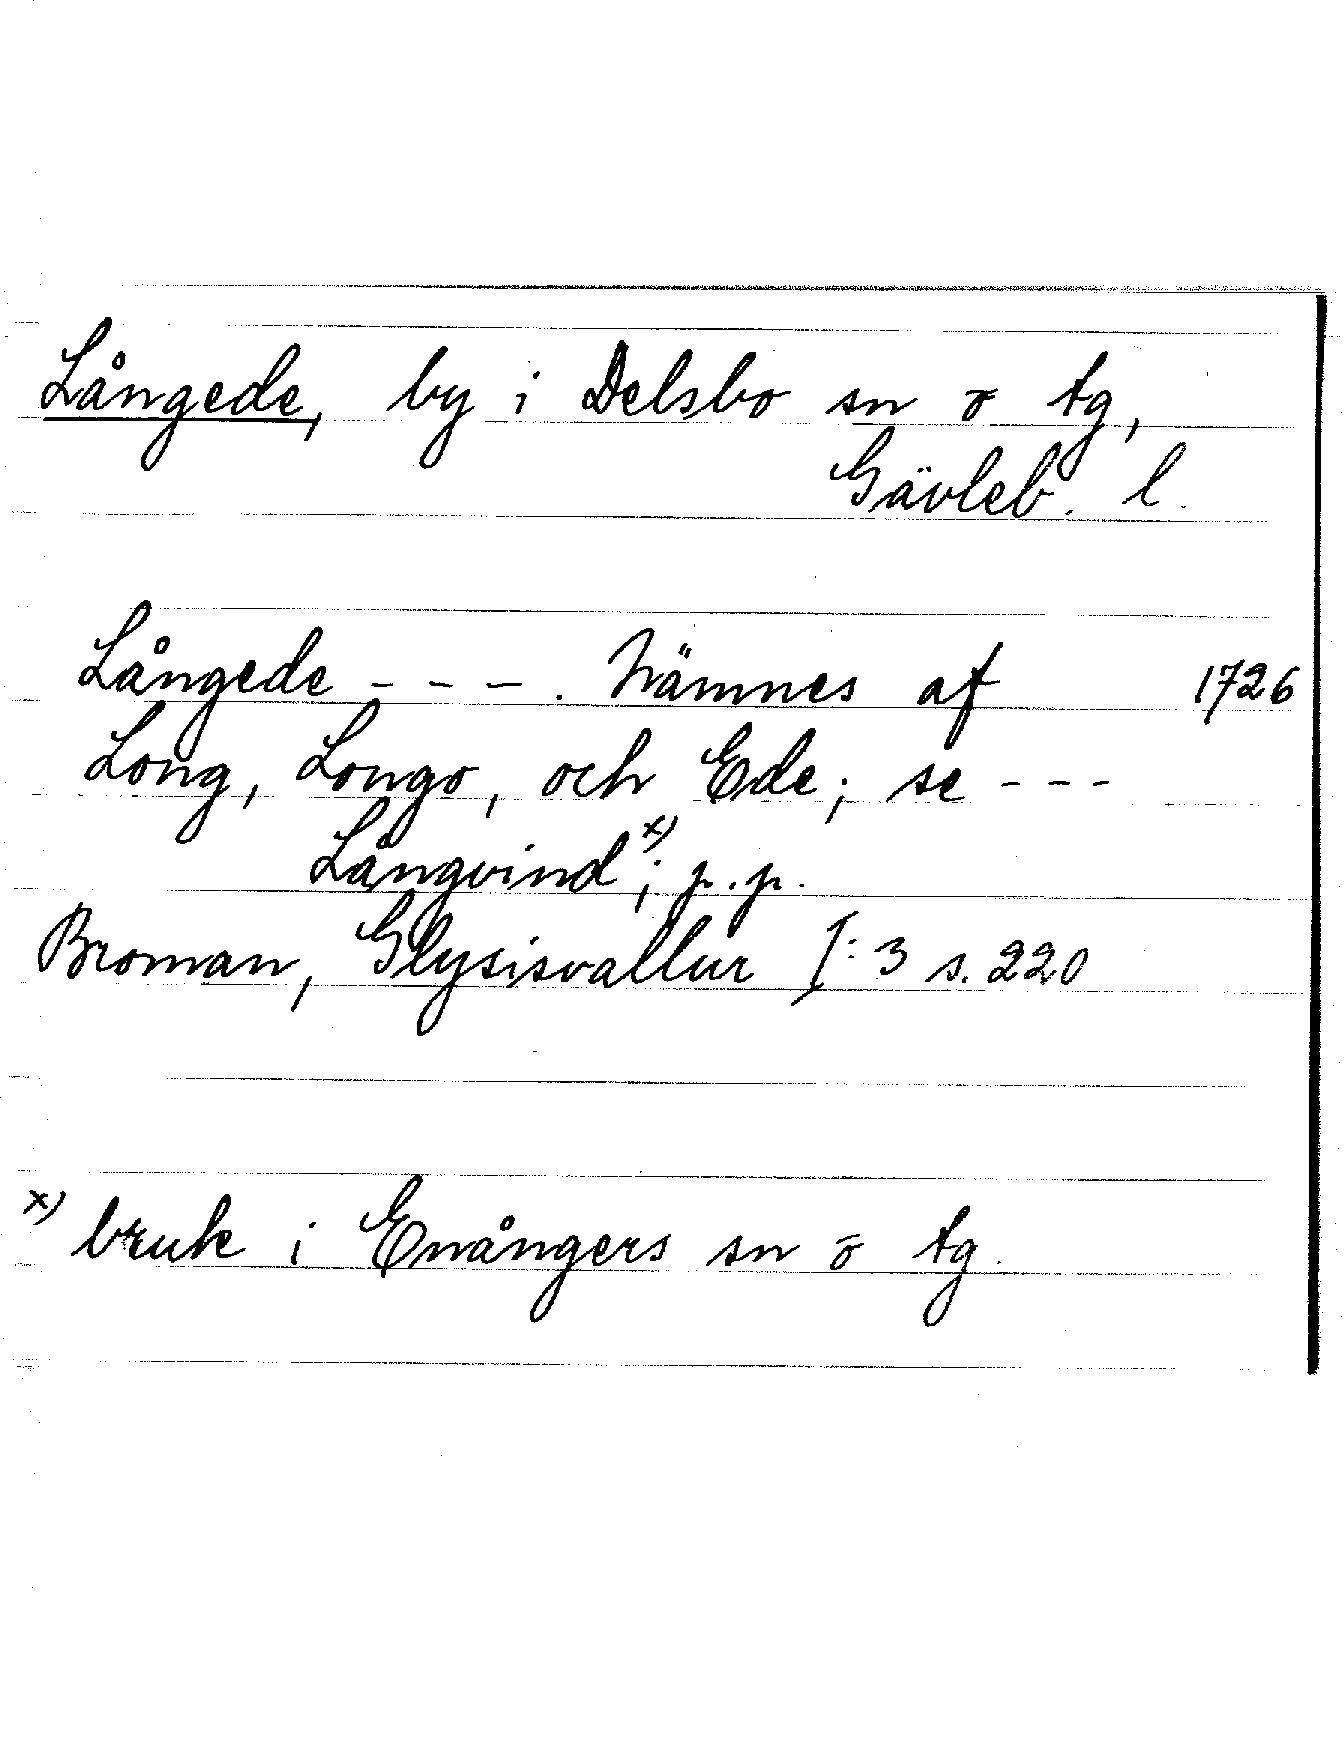 Långede, by i Delsbo sn o tg,
Gävleb. l.
Långede - - - . Nämnes af 1726
Long, Longo, och Ede; se - - -
Långvind x); p.p.
Broman, Glysisvallur I: 3 s. 220
x) bruk i Enångers sn o tg.